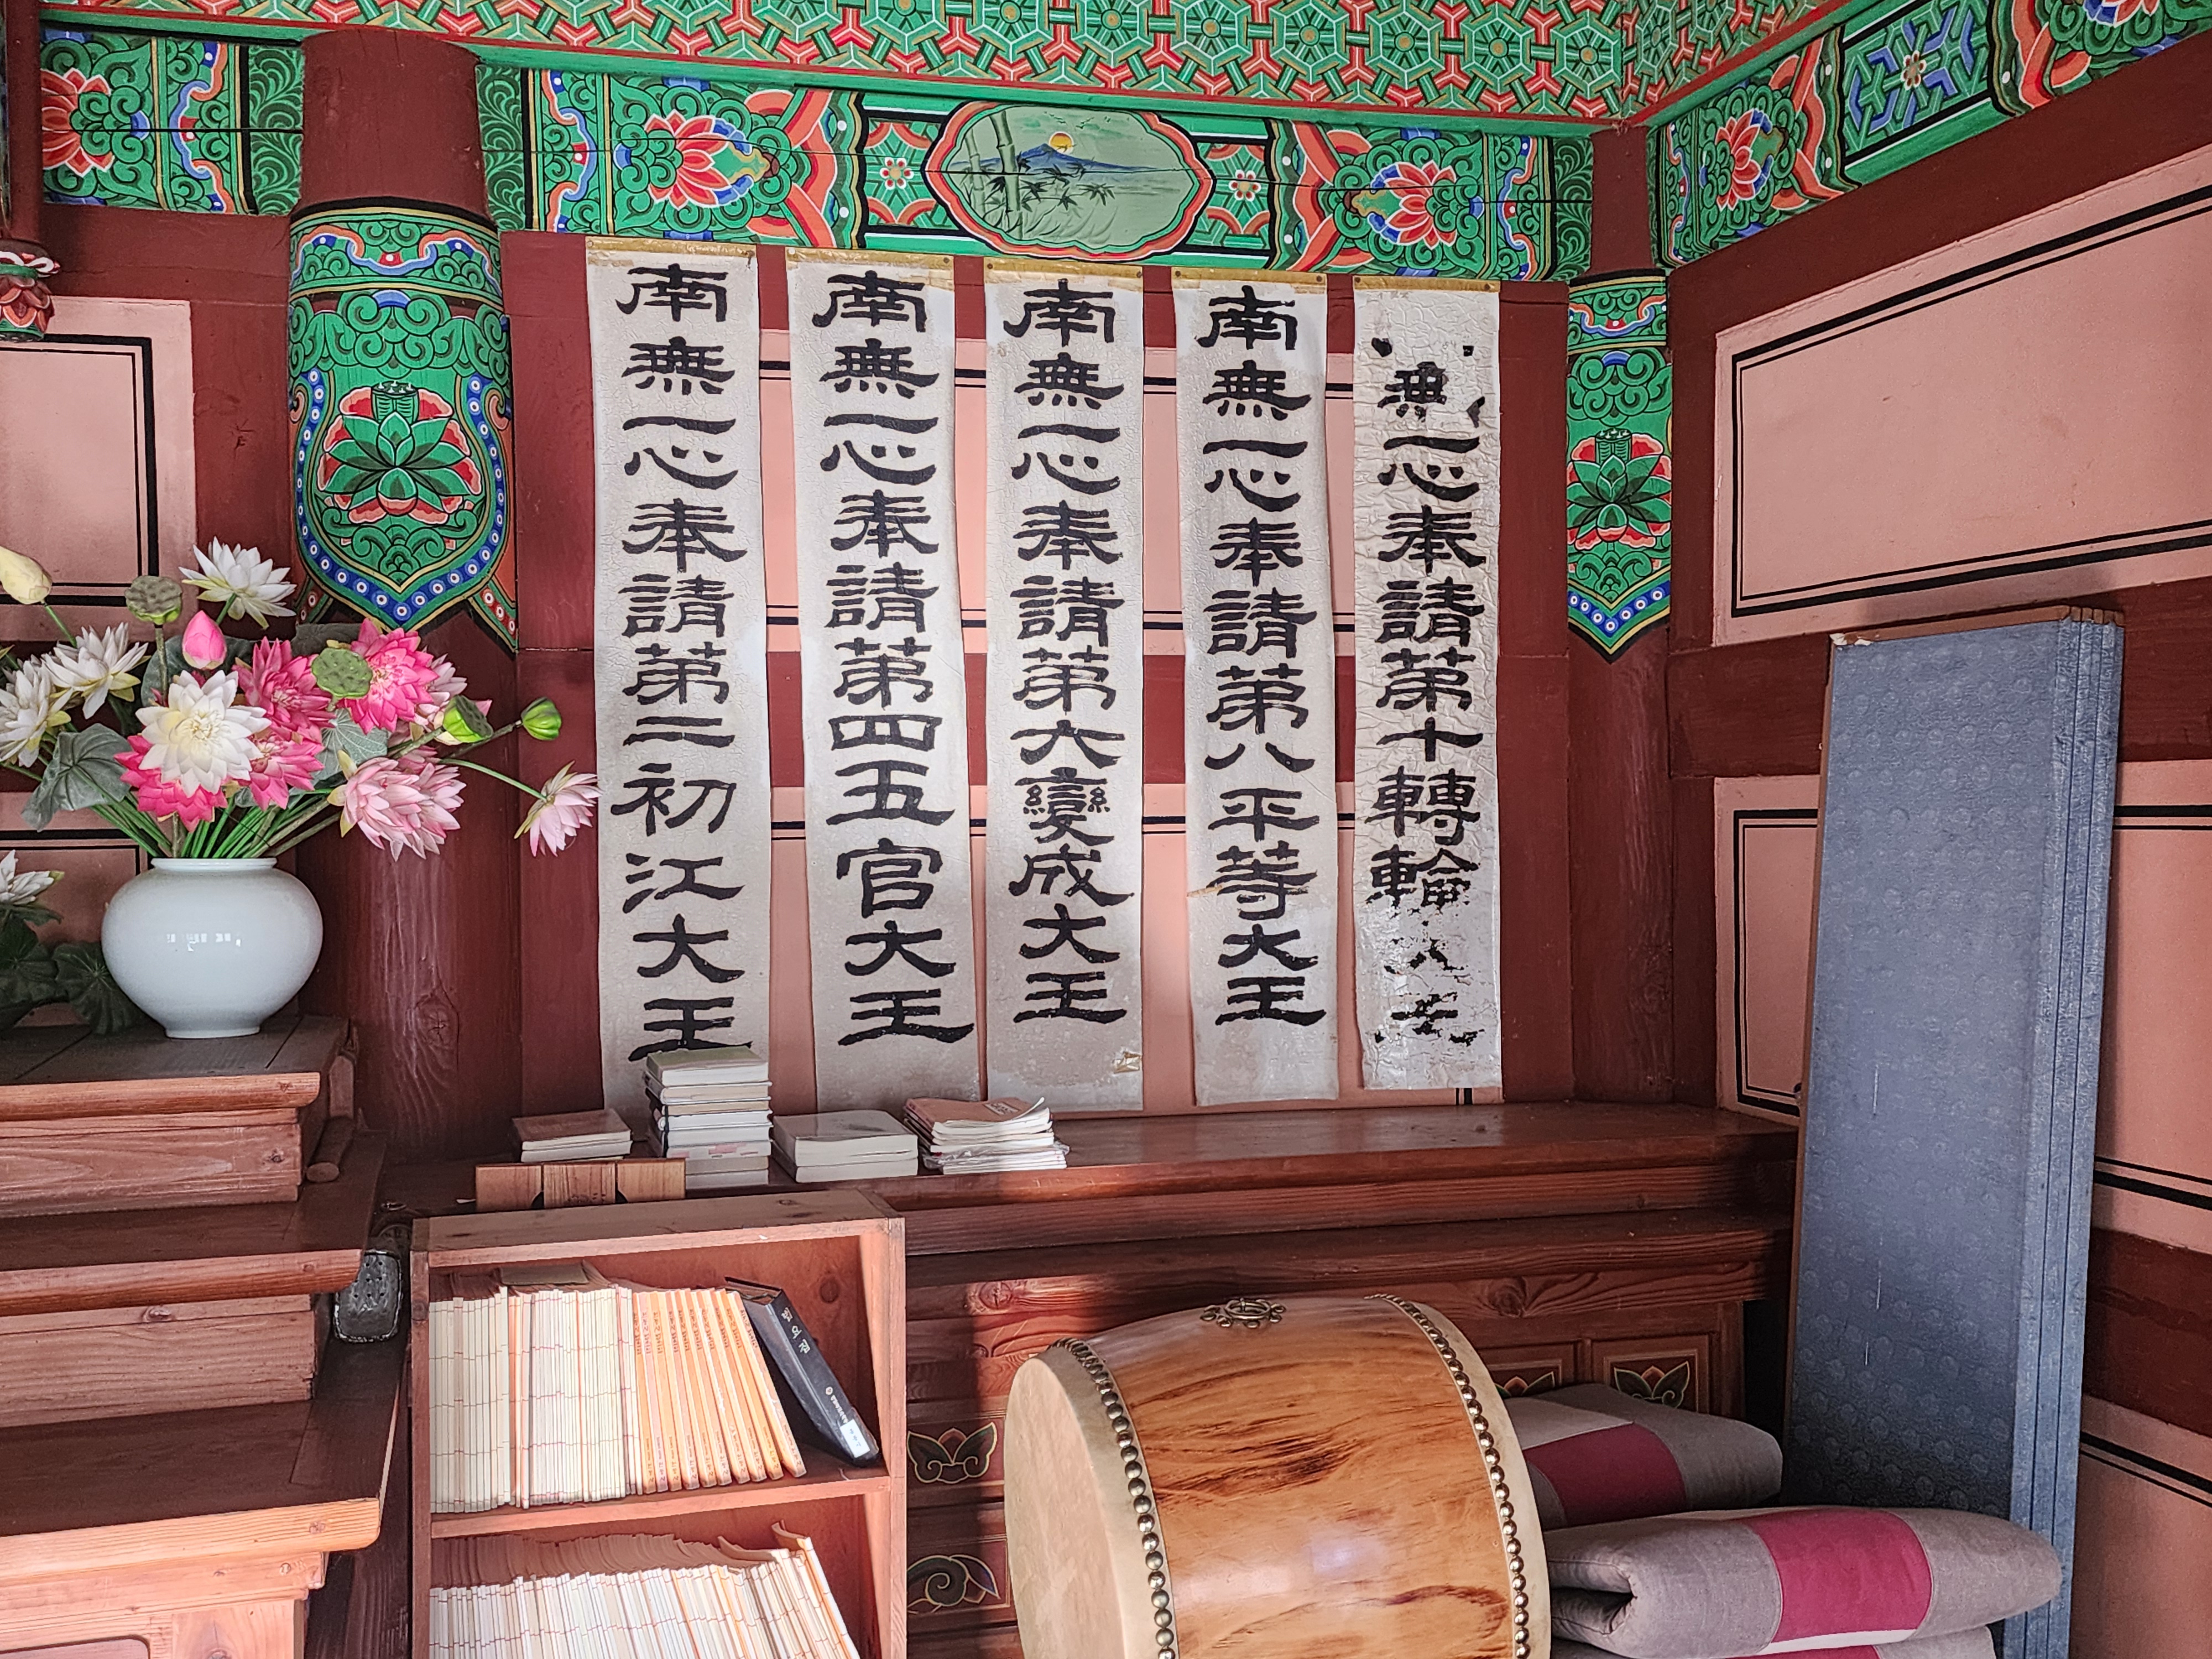 南無一心奉請第二初江大王
南無一心奉請第四五官大王
南無一心奉請第六變成大王
南無一心奉請第八平等大王
無一心奉請第十轉輪大王